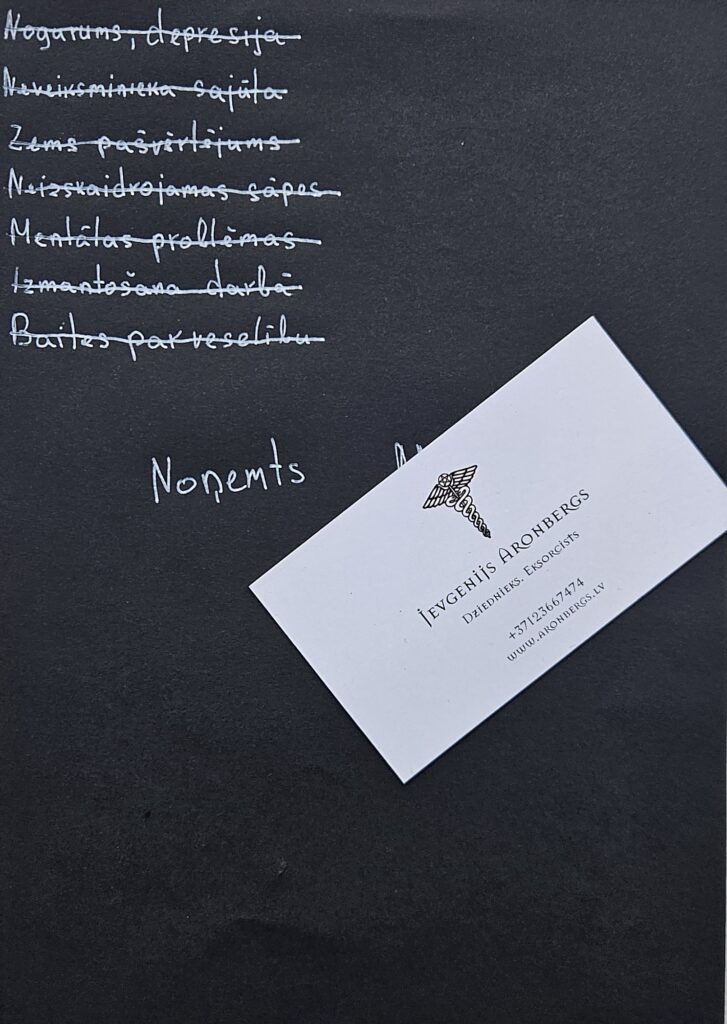 Nogurums, depresija
Neveiksminieka sajūta
Zems pašvērtējums
Neizskaidrojamas sāpes
Mentālas problēmas
Izmantošana darbā
Bailes par veselību
Noņemts
Jevgenijs Aronbergs
Dziednieks. Eksorcists
+37123667474
www.aronbergs.lv